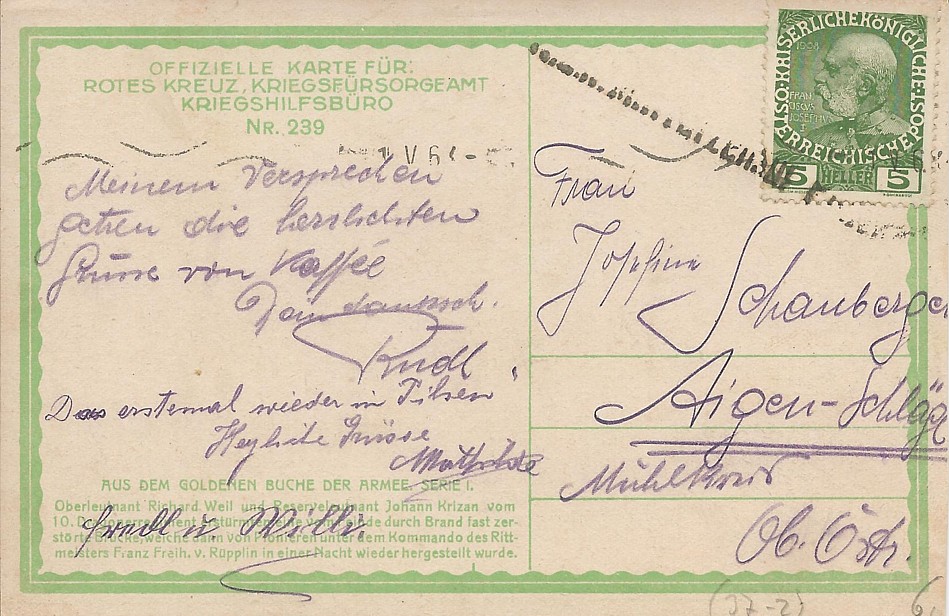 OFFIZIELLE KARTE FÜR:
ROTES KREUZ, KRIEGSFÜRSORGEAMT
KRIEGSHILFSBÜRO
NR. 239
KAISERLICHE KÖNIGLICHE ÖSTERREICHISCHE POST
1908
FRAN
CISCVS
JOSEPHVS
I
5 HELLER 5
Meinem Versprechen
die herzlichsten
Grüsse von Kaffée
Dein
Rudl
Das erstemal wieder in Pilsen
Grüsse
Frau
Josefine Schauberger
Aigen-Schlägl
Mühlkreis
Ob. Östr.
AUS DEM GOLDENEN BUCHE DER ARMEE, SERIE I.
Oberleutnant Richard Weil und Reserveleutnant Johann Krizan vom
10. durch Brand fast zer-
störte Brücke, welche dann von Pionieren unter dem Kommando des Ritt-
meisters Franz Freih. v. Rüpplin in einer Nacht wieder hergestellt wurde.
Willi
(37-2)
6